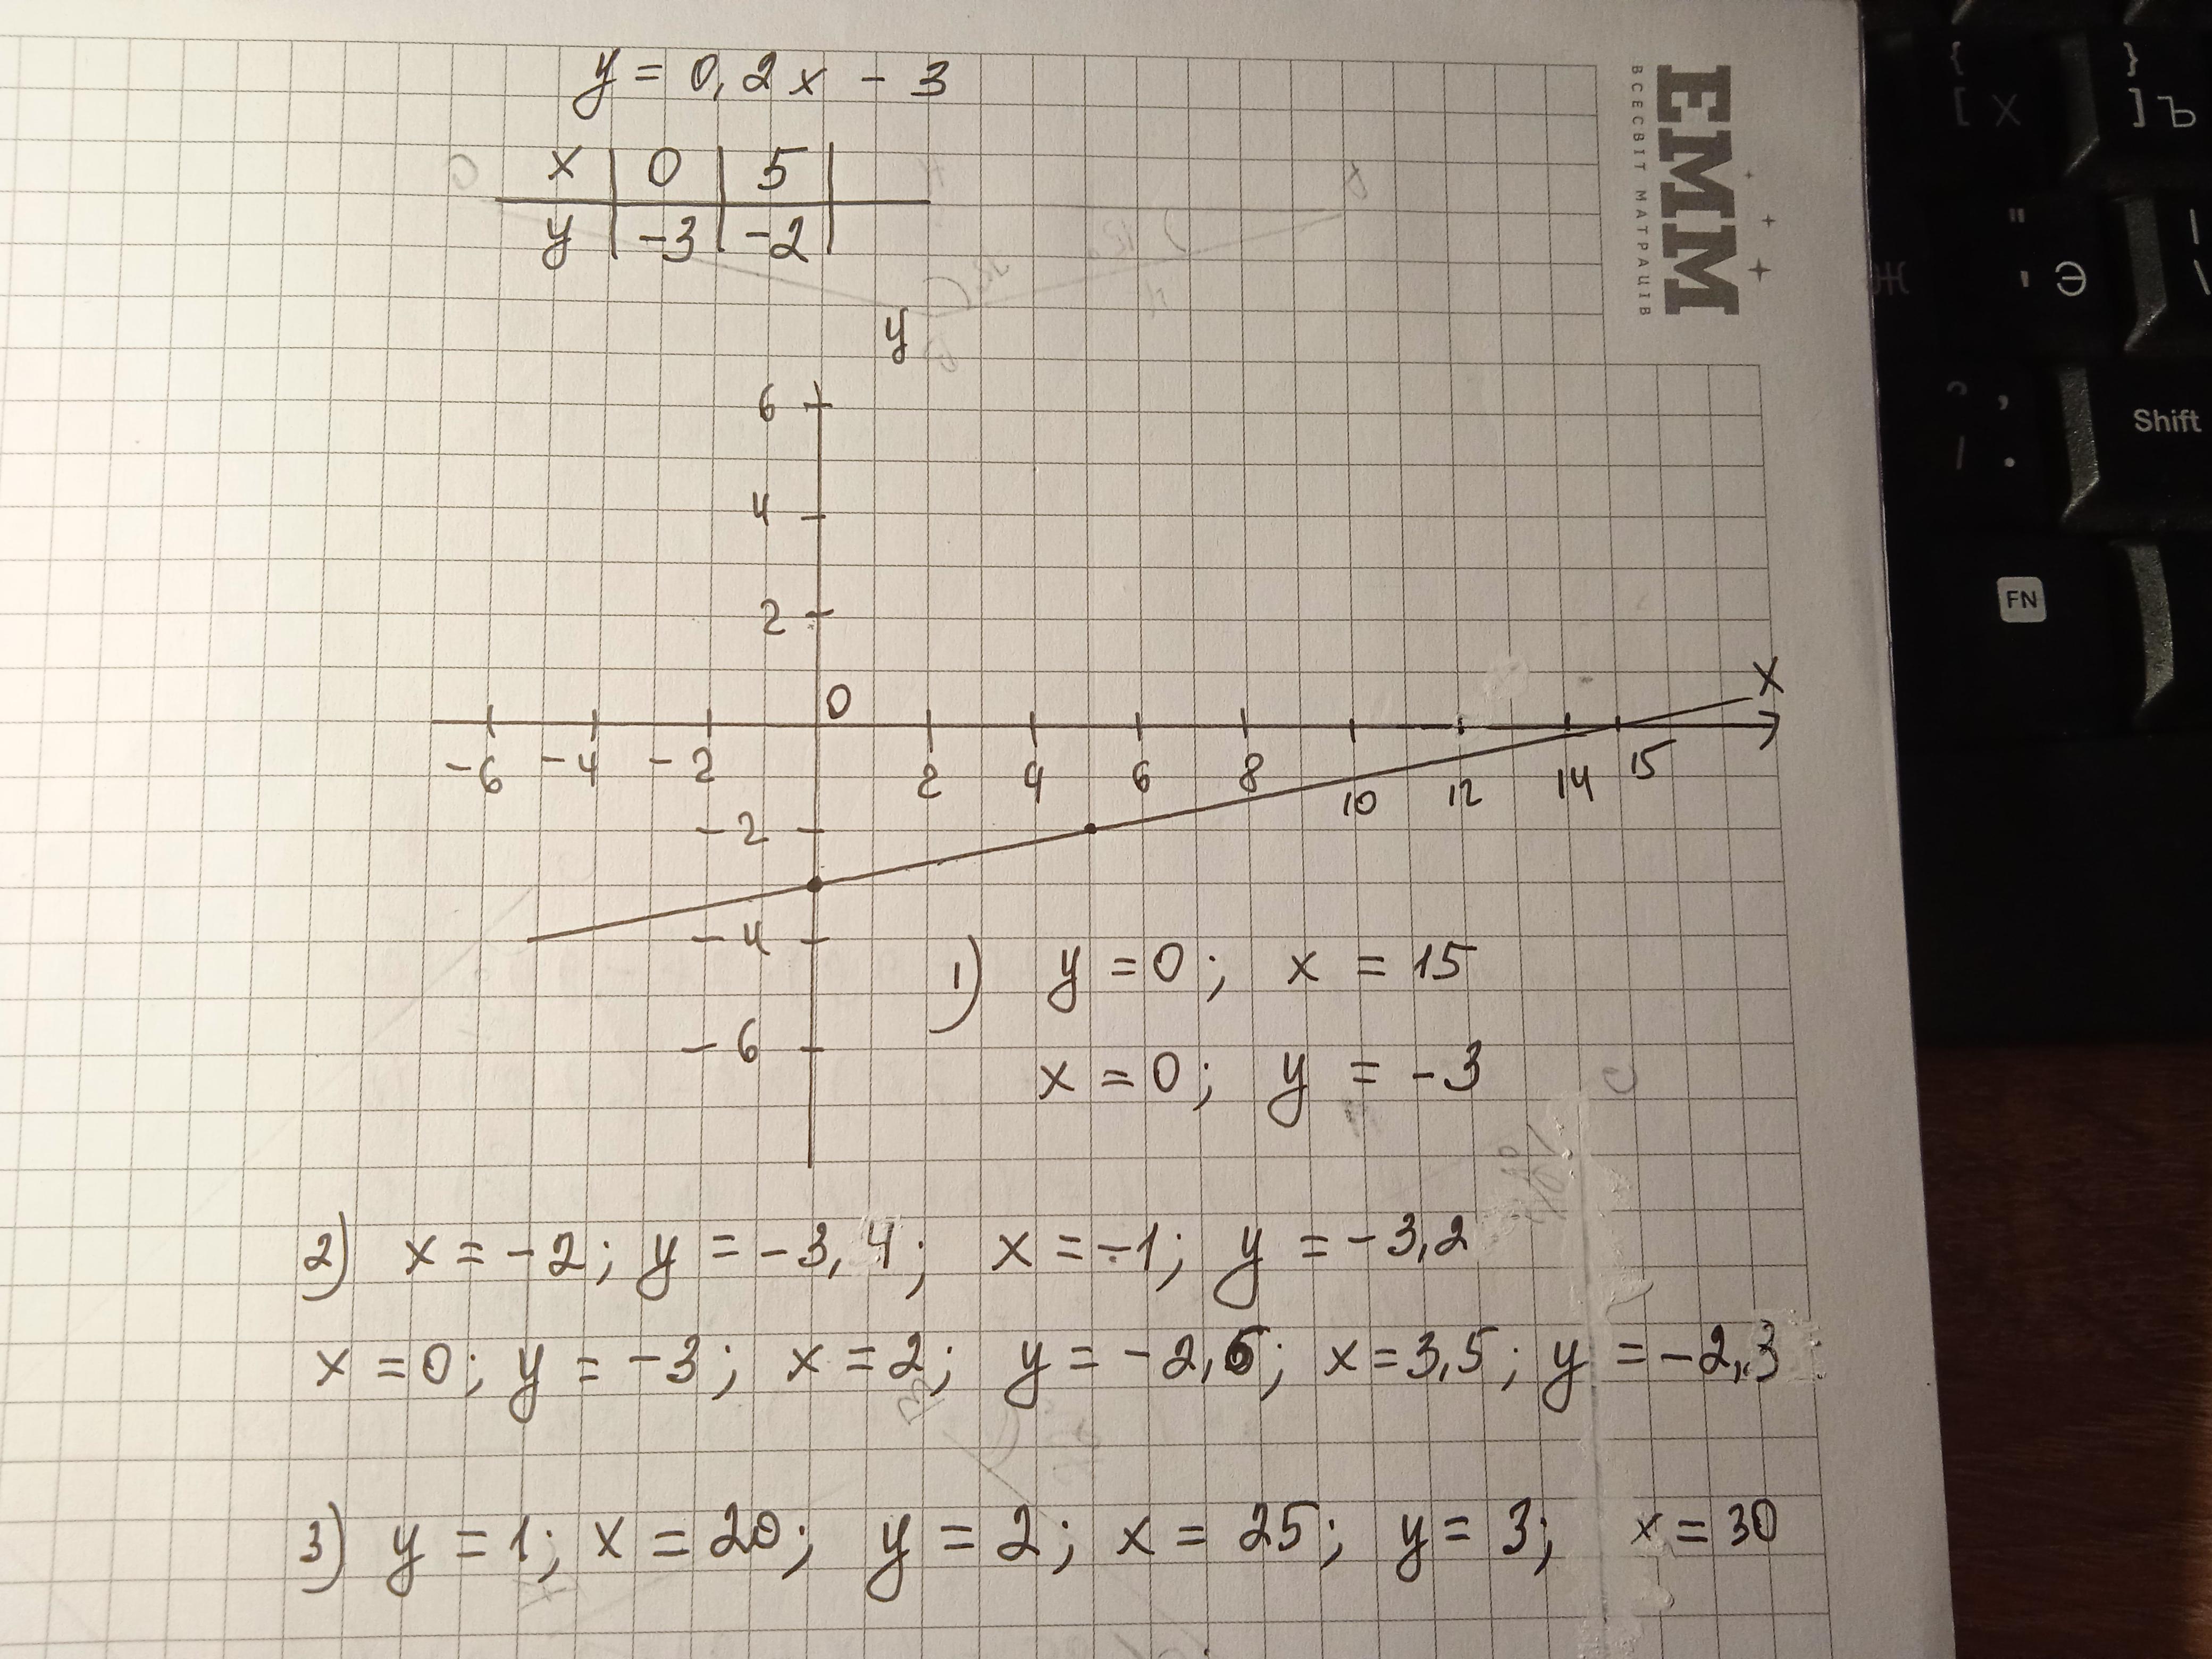 y = 0,2x - 3
x | 0 | 5 |
y | -3 | -2 |
EMM
ВСЕСВІТ МАТРАЦІВ
y
6
4
2
0
x
-6 -4 -2 2 4 6 8 10 12 14 15
-2
-4
-6
1) y = 0; x = 15
x = 0; y = -3
2) x = -2; y = -3,4; x = -1; y = -3,2
x = 0; y = -3; x = 2; y = -2,6; x = 3,5; y = -2,3
3) y = 1; x = 20; y = 2; x = 25; y = 3; x = 30
{
[ Х
}
] Ъ
Ж
" ' Э
Shift
FN